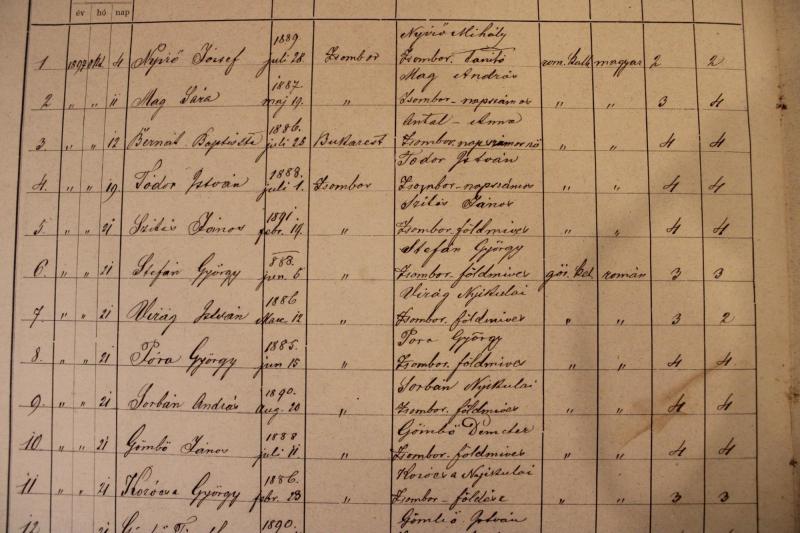 év hó nap
1889 Nyirő Mihály
1 1897 Okt 4 Nyirő József juli 28. Zsombor Zsombor. Tanító rom. kath magyar 2 2
1887 Mag András
2 " " 11 Mag Sára maj 19. " Zsombor - napszámos " " 3 4
1886. Antal - Anna
3. " " 12 Bernát juli 23 Bukarest Zsombor napszámosnő " " 4 4
1888. Todor István
4. " " 19 Todor István juli 1. Zsombor Zsombor - napszámos " " 4 4
1891. Szitás János
5 " " 21 Szitás János febr. 19. " Zsombor. földmives " " 4 4
883. Stefán György
6. " " 21 Stefán György jun. 6 " Zsombor. földmives gör. kel. román 3 3
1886 Virág Nyikulai
7. " " 21 Virág István Mar. 12 " Zsombor. földmives " " 3 2
1885. Póra György
8. " " 21 Póra György jun 15 " Zsombor. földmives " " 4 4
1890. Sorbán Nyikulai
9 " " 21 Sorbán András aug. 20 " Zsombor. földmives " " 4 4
1888 Gömbö Demeter
10 " " 21 Gömbö János juli 11 " Zsombor. földmives " " 4 4
1886. Kozócsa Nyikulai
11 " " 21 Kozócsa György febr. 23 " Zsombor - " " 3 3
12 21 1890. István